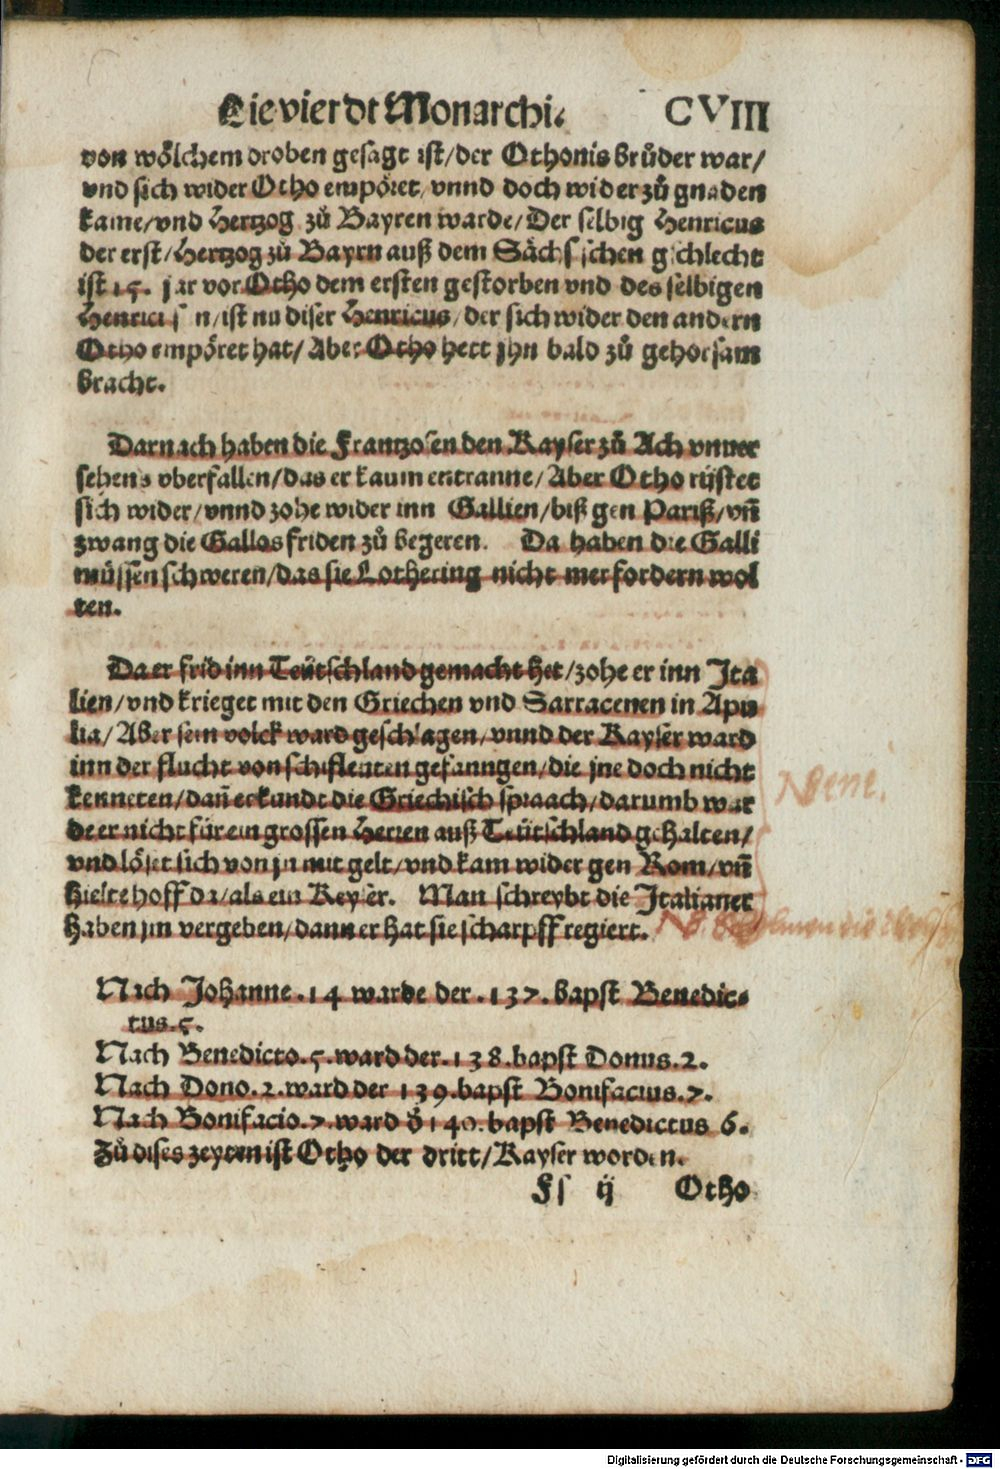 Die vierdt Monarchi. CVIII
von wölchem droben gesagt ist/der Othonis brůder war/
vnd sich wider Otho empöret/vnnd doch wider zů gnaden
kame/vnd Hertzog zů Bayren warde/Der selbig Henricus
der erst/Hertzog zů Bayrn auß dem Sächsischen gschlecht
ist 15. jar vor Otho dem ersten gestorben vnd des selbigen
Henrici s n/ist nu diser Henricus/der sich wider den andern
Otho empöret hat/Aber Otho hett jhn bald zů gehorsam
bracht.
Darnach haben die Frantzosen den Kayser zů Ach vnuer
sehens vberfallen/das er kaum entranne/Aber Otho rüstet
sich wider/vnnd zohe wider inn Gallien/biß gen Pariß/vñ
zwang die Gallos friden zů begeren. Da haben die Galli
müssen schweren/das sie Lothering nicht mer fordern wol
ten.
Da er frid inn Teütschland gemacht het/zohe er inn Ita
lien/vnd krieget mit den Griechen vnd Sarracenen in Apu
lia/Aber sein volck ward geschlagen/vnnd der Kayser ward
inn der flucht von schifleuten gefanngen/die jne doch nicht
kenneten/dañ er kundt die Griechisch spraach/darumb war
de er nicht für ein grossen Herren auß Teütschland gehalten/
vnd löset sich von jn mit gelt/vnd kam wider gen Rom/vñ
hielte hoff da/als ein Keyser. Man schreybt die Italianer
haben jm vergeben/dann er hat sie scharpff regiert.
Nbene.
NB.
Nach Johanne .14 warde der .137. bapst Benedic⸗
tus.5.
Nach Benedicto.5.ward der.138.bapst Donus.2.
Nach Dono.2.ward der 139.bapst Bonifacius.7.
Nach Bonifacio.7.ward d̕ 140.bapst Benedictus 6.
Zů dises zeyten ist Otho der dritt/Kayser worden.
Fs ij Otho
Digitalisierung gefördert durch die Deutsche Forschungsgemeinschaft - DFG